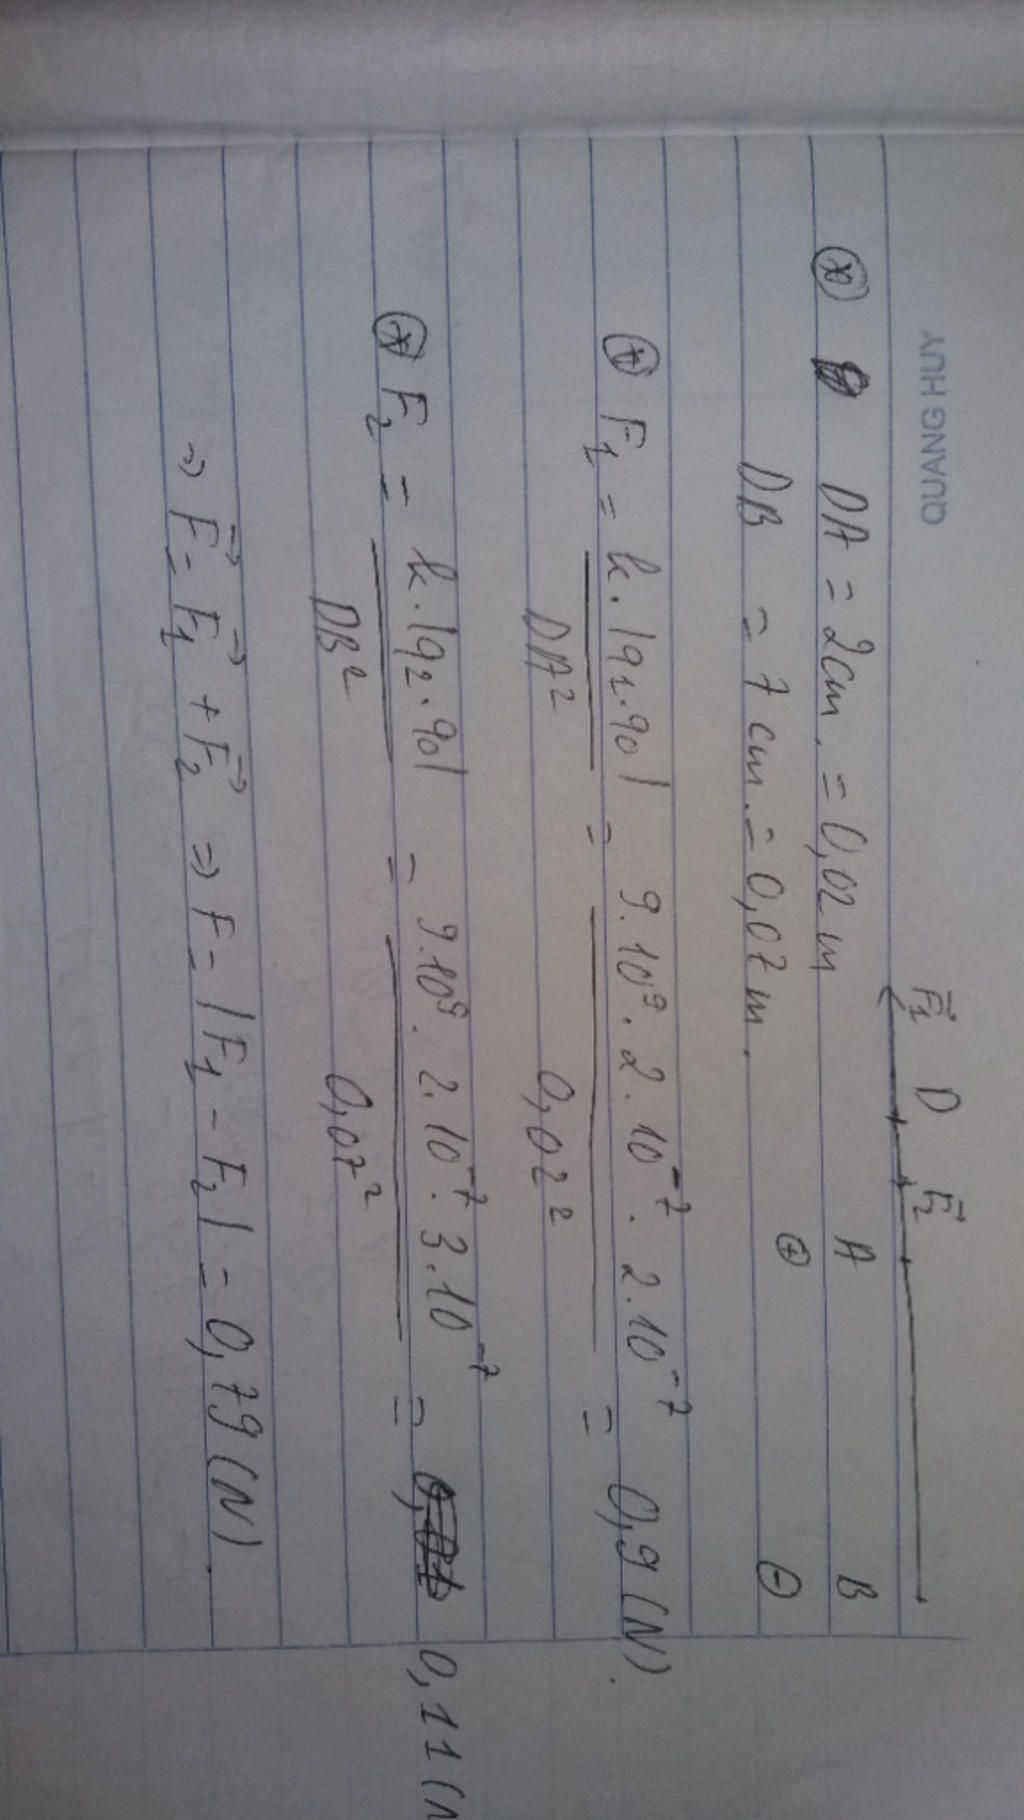 QUANG HUY
F₁ D F₂
A B
⊕ ⊖
⊛ DA = 2cm = 0,02 m
DB = 7 cm = 0,07 m.
⊛ F₁ = k.|q₁.q₀| / DA² = 9.10⁹. 2.10⁻⁷. 2.10⁻⁷ / 0,02² = 0,9 (N).
⊛ F₂ = k.|q₂.q₀| / DB² = 9.10⁹. 2.10⁻⁷. 3.10⁻⁷ / 0,07² = 0,11 (N
⇒ F⃗ = F⃗₁ + F⃗₂ ⇒ F = |F₁ - F₂| = 0,79 (N).